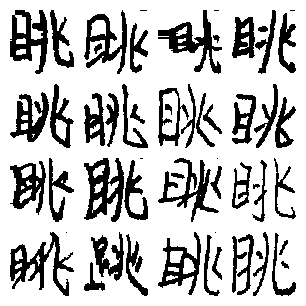 眺眺眺眺
眺眺眺眺
眺眺眺眺
眺眺眺眺